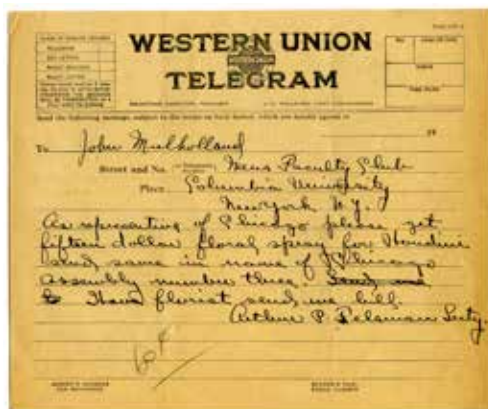 WESTERN UNION
TELEGRAM
Send the following message, subject to the terms on back hereof, which are hereby agreed to
19
To John Mulholland
Street and No. Mens Faculty Club
Place Columbia University
New York N.Y.
As representing of Chicago please get
fifteen dollar floral spray for Houdini
send same in name of Chicago
assembly number three. Send me
Have florist send me bill.
Arthur P. Felsman Secty.
60¢